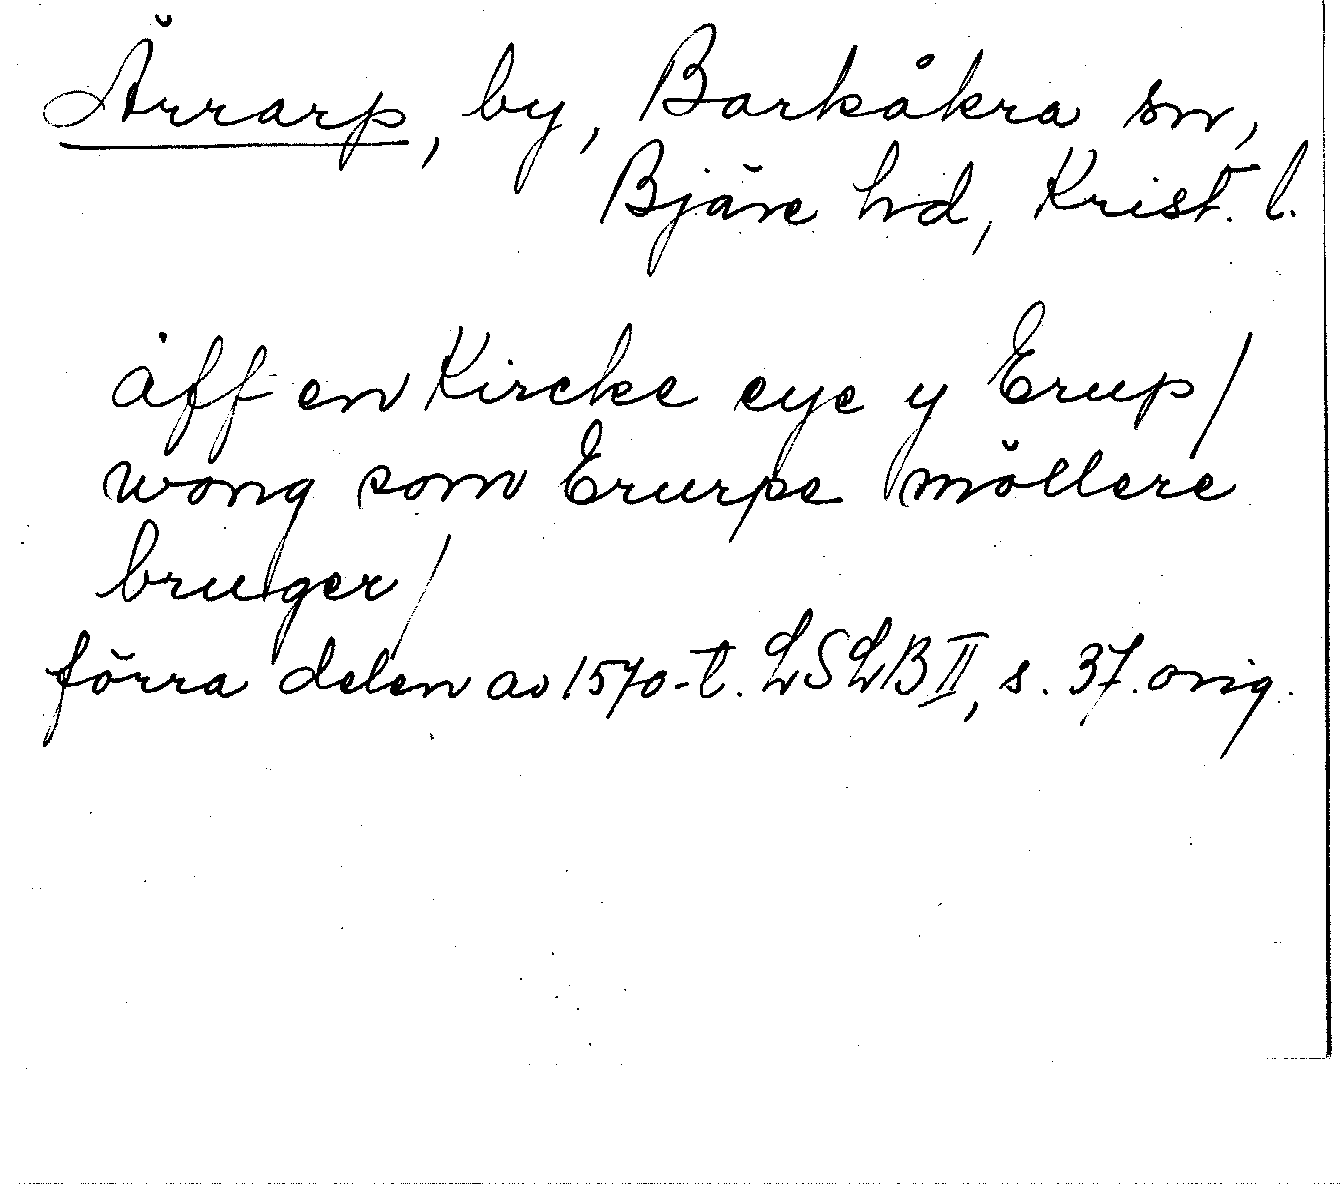 Ärrarp, by, Barkåkra sn,
Bjäre hd, Krist. l.
åff en Kircke eye y Erup/
wong som Erurpe möllere
bruger/
förra delen av 1570-t. LSLB II, s. 37. orig.